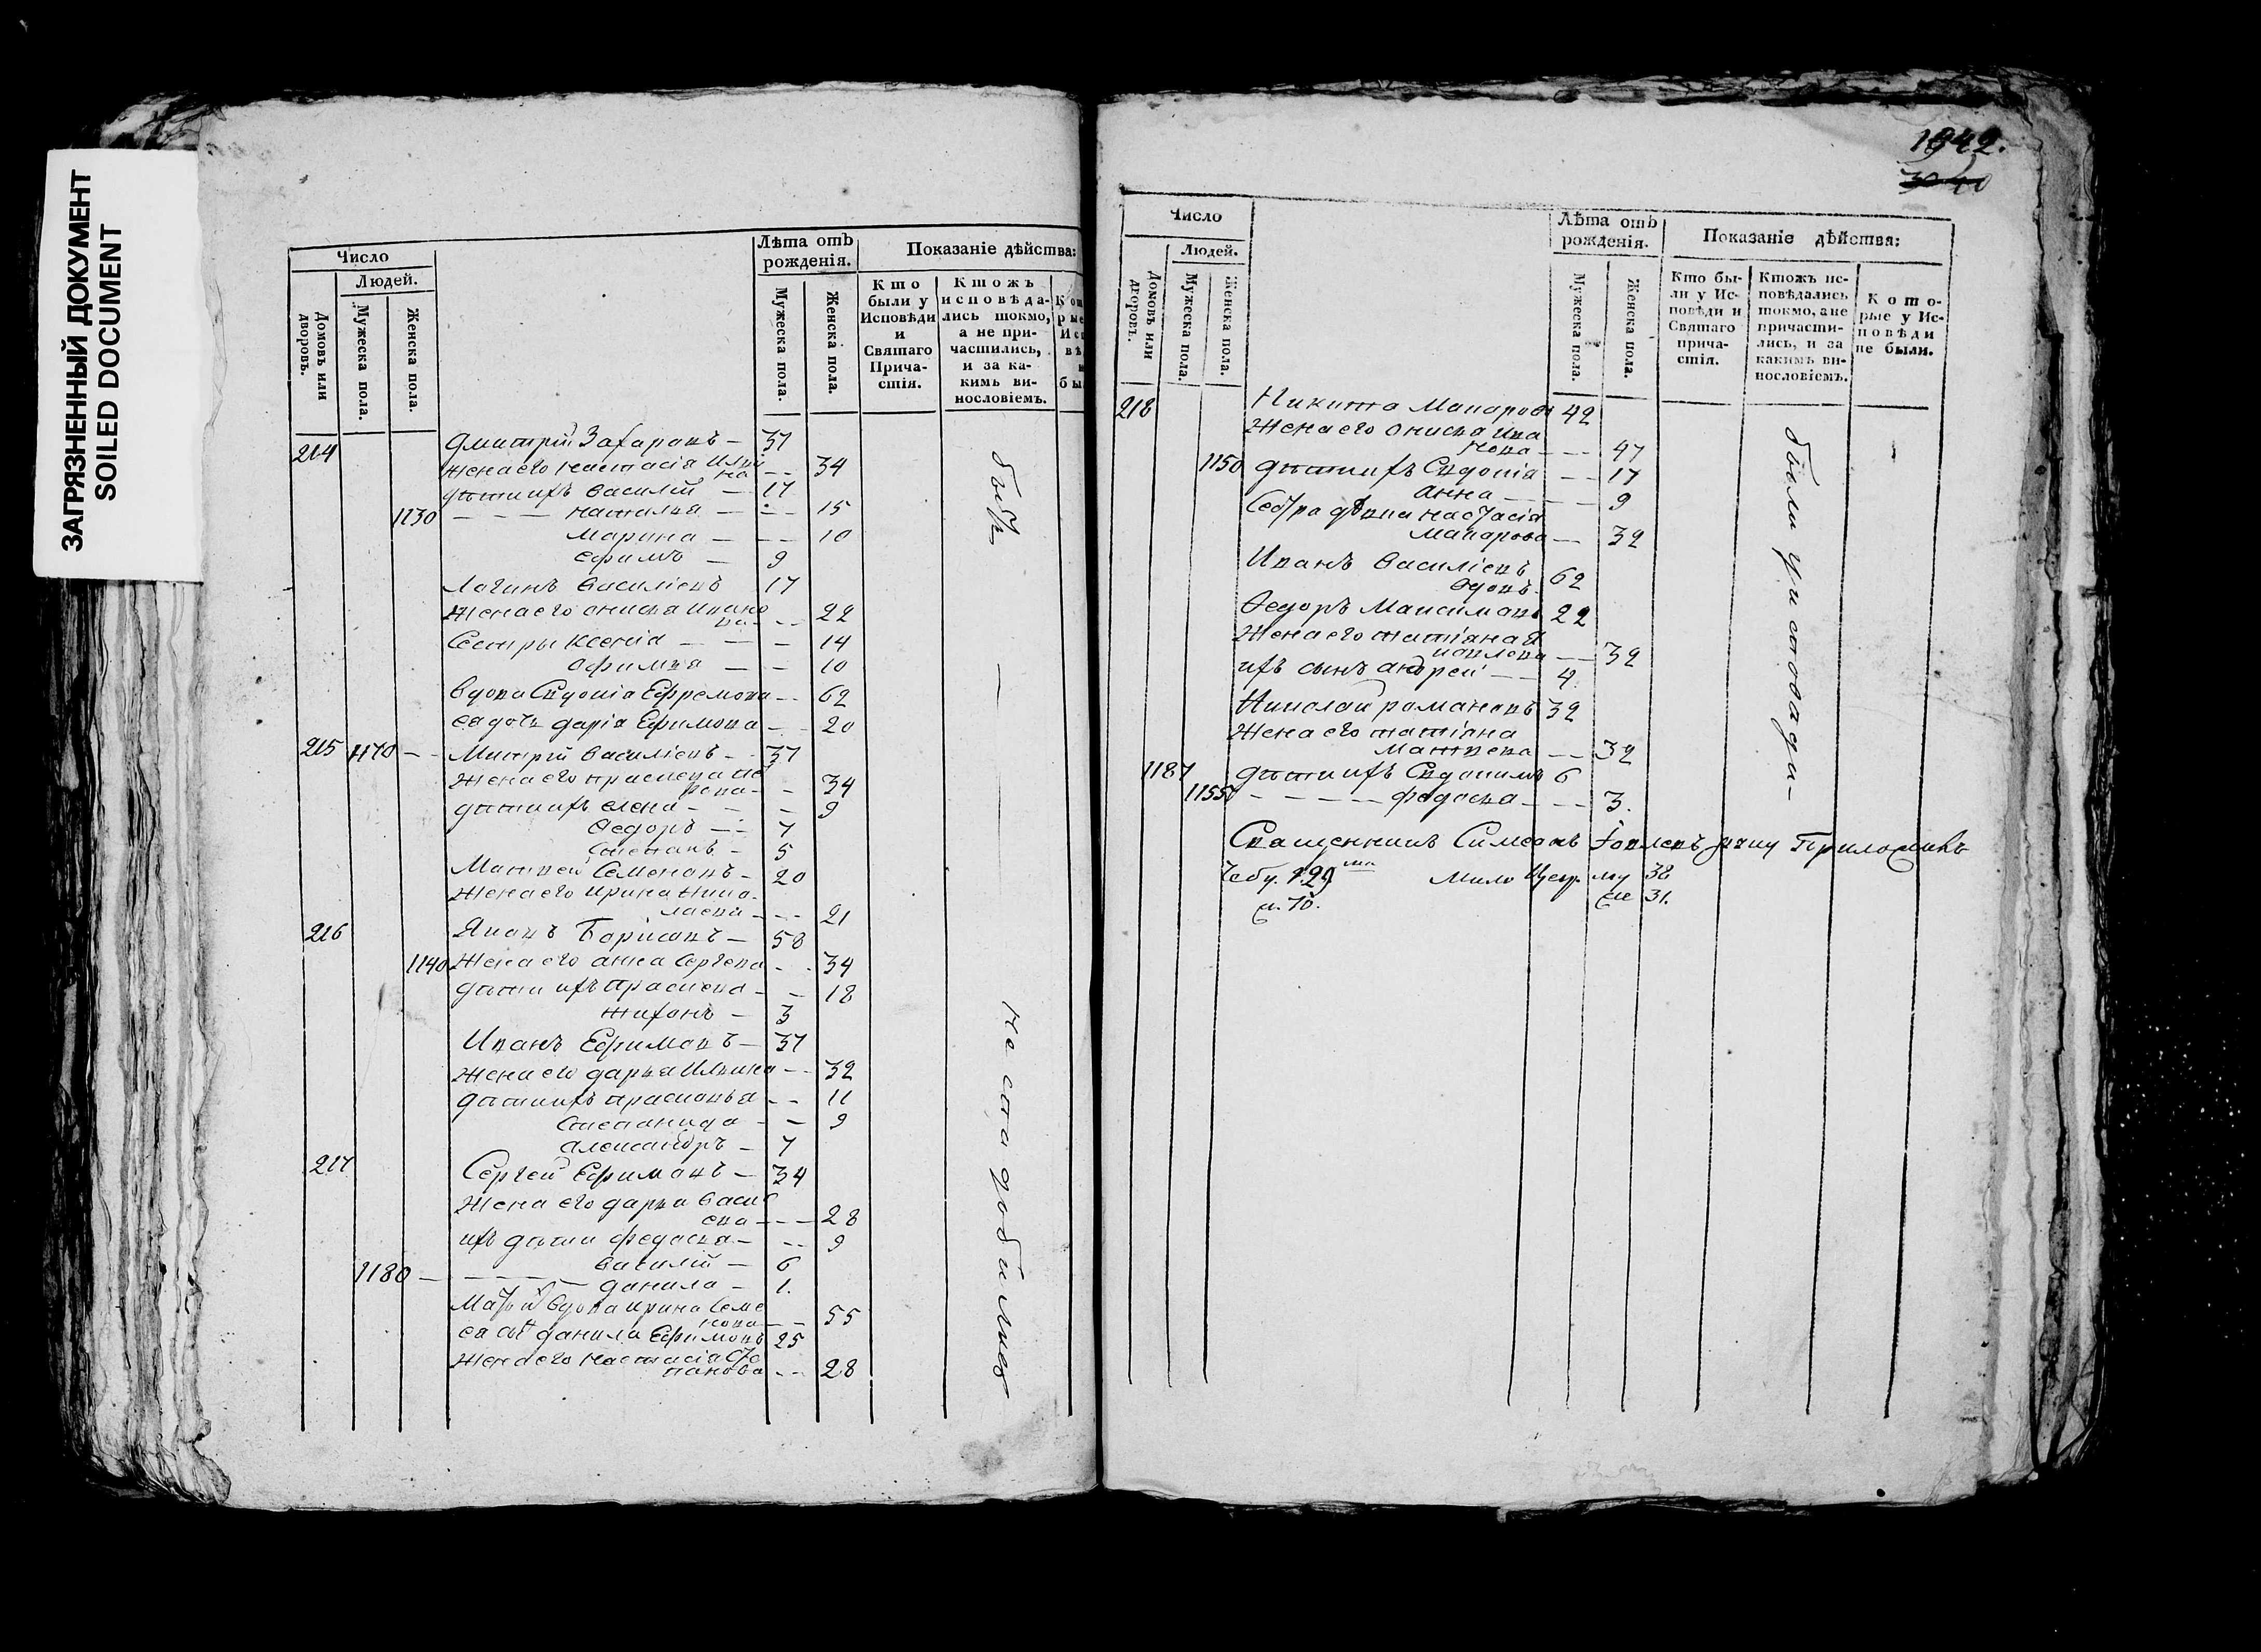 ЗАГРЯЗНЕННЫЙ ДОКУМЕНТ
SOILED DOCUMENT
Число
Людей.
Домовъ или дворовъ.
Мужеска пола.
Женска пола.
Лѣта отъ рожденія.
Мужеска пола.
Женска пола.
Показаніе дѣйства:
Кто были у Исповѣди и Святаго Причастія.
Ктожъ исповѣдались токмо, а не причастились, и за какимъ винословіемъ.
214 Дмитрій Захаровъ — 37
жена его настасія Ильи
на — 34
дѣти ихъ василій — 17
1130 — — — наталья — 15
Марина — 10
ефимъ — 9
Логинъ василіевъ 17
Жена его ониска Ивано
ва — 22
Сестры ксенія — 14
афимья — 10
вдова Евдокіа Ефремова — 62
ея дочь дарія Ефимова — 20
215 1170 — Митрій василіевъ — 37
Жена его прасковя
— 34
дѣти ихъ елена — 9
Ѳедоръ — 7
Степанъ — 5
Матвей Семеновъ — 20
Жена его Ирина Нико
лаева — 21
216 Яковъ Борисовъ — 58
1140 Жена его анна Сергева — 34
дѣти ихъ прасковя — 18
тихонъ — 3
Иванъ Ефимовъ — 37
Жена его дарья Ильина — 32
дѣти ихъ прасковья — 11
Степанида — 9
александръ — 7
217 Сергей Ефимовъ — 34
Жена его дарья васил
ева — 28
ихъ дѣти федосья — 9
василій — 6
1180 — — — данила — 1.
Мать и вдова ирина Семе
нова — 55
ея сынъ данила Ефимовъ 25
Жена его Настасіа Сте
панова — 28
не сподобились
1942.
3040
Число
Людей.
Домовъ или дворовъ.
Мужеска пола.
Женска пола.
Лѣта отъ рожденія.
Мужеска пола.
Женска пола.
Показаніе дѣйства:
Кто были у Исповѣди и Святаго причастія.
Ктожъ исповѣдались токмо, а не причастились, и за какимъ винословіемъ.
Которые у Исповѣди не были.
218 Никита Макаровъ 42
Жена его ониска ива
нова — 47
1150 дѣти ихъ Евдокіа — 17
анна — 9
Сестра дѣвка настасіа
Макарова — 32
Иванъ василіевъ
вдовъ. 62
Ѳедоръ Максимовъ 22
Жена его татіана Я
ковлева — 32
ихъ сынъ андрей — 4
Николай романовъ 32
Жена его татіана
Матвева — 32
1187 дѣти ихъ Евдокимъ 6
1155 — — — федосья — 3.
были у исповеди —
Священникъ Симеонъ Іовлевъ руку Приложилъ
му 38
31.